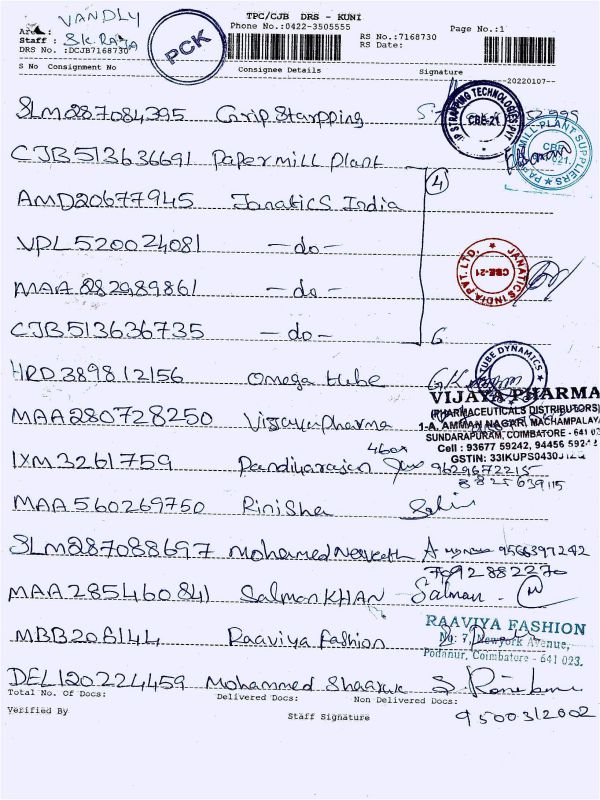 VANDLY
TPC/CJB DRS - KUNI
Phone No.:0422-3505555
Page No.:1
Area :
Staff : S.K. RAJA
RS No.:7168730
RS Date:
DRS No. :DCJB7168730
PCK
S No Consignment No Consignee Details Signature
20220107
SLM287084395 Grip Starpping
STRAPPING TECHNOLOGIES PVT
CBE-21
CJB513636691 Papermill Plant
PAPERMILL-PLANT SUPPLIERS
CBE
21.
4
AMD20677945 Janatics India
VPL520024081 -do-
MAA282989861 -do-
JANATICS INDIA PVT. LTD.
CBE-21
CJB513636735 -do- 6
HRD389812156 Omega tube
TUBE DYNAMICS
MAA280728250 Vijayapharma
VIJAYA PHARMA
(PHARMACEUTICALS DISTRIBUTORS)
1-A, AMMAN NAGAR, MACHAMPALAYA
SUNDARAPURAM, COIMBATORE - 641 0
Cell : 93677 59242, 94456 592
GSTIN: 33IKUPS0430J1ZQ
IXM3261759 Pandiyarajan
9629672215
8825639115
MAA560269750 Rinisha
SLM287088697 Mohamed 9566397242
7092882270
MAA285460841 Salman KHAN Salman
MBB206144 Raaviya fashion
RAAVIYA FASHION
No: 7, Newyork Avenue,
Podanur, Coimbatore - 641 023.
DEL120224459 Mohammed Shaaruk
Total No. Of Docs: Delivered Docs: Non Delivered Docs:
Verified By Staff Signature
9500312602